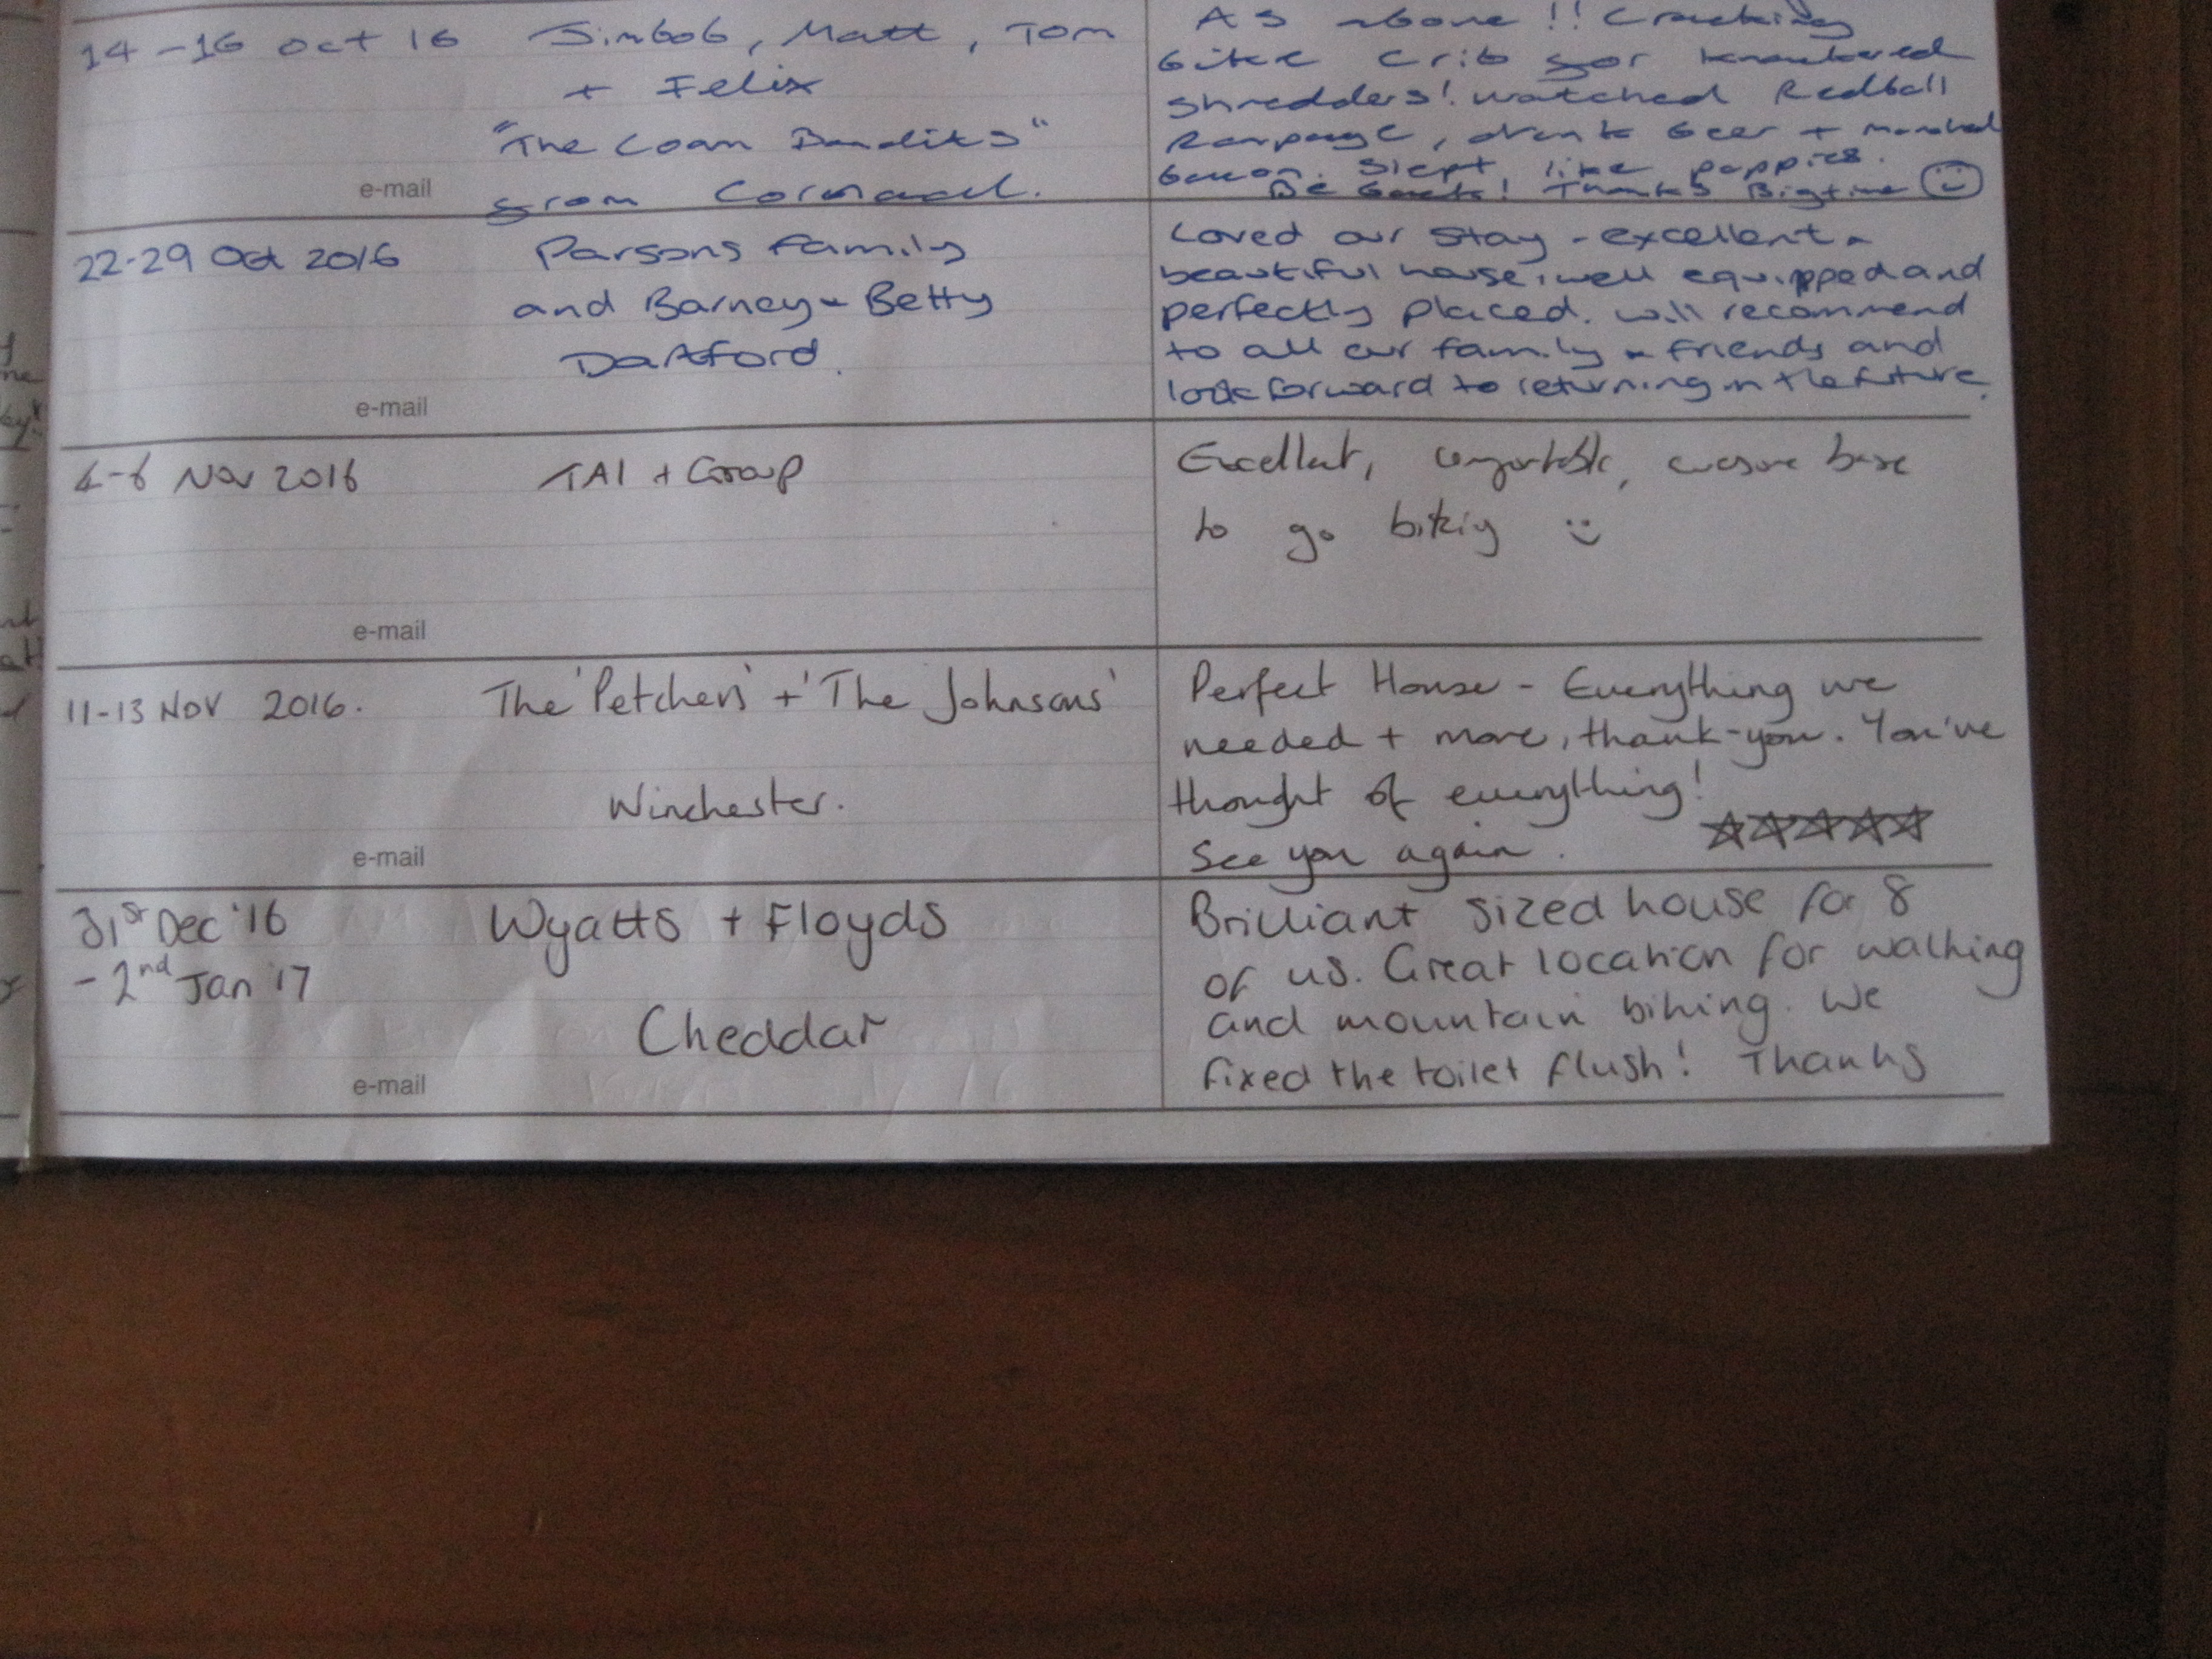 14-16 Oct 16
Jimbob, Matt, Tom
+ Felix
"The Loam Bandits"
from Cornwall.
e-mail
As above!! Cracking
bike crib for knackered
shredders! watched Redbull
Rampage, drank beer + munched
bacon. Slept like puppies.
Be back! Thanks Bigtime
22-29 Oct 2016
Parsons Family
and Barney & Betty
Dartford.
e-mail
Loved our stay - excellent &
beautiful house, well equipped and
perfectly placed. will recommend
to all our family & friends and
look forward to returning in the future.
4-6 Nov 2016
TAI + Group
e-mail
Excellent, comfortable, awesome base
to go biking :)
11-13 NOV 2016.
The 'Petchers' + 'The Johnsons'
Winchester.
e-mail
Perfect House - Everything we
needed + more, thank-you. You've
thought of everything!
See you again. ☆☆☆☆☆
31st Dec '16
- 2nd Jan '17
Wyatts + Floyds
Cheddar
e-mail
Brilliant sized house for 8
of us. Great location for walking
and mountain biking. We
fixed the toilet flush! Thanks